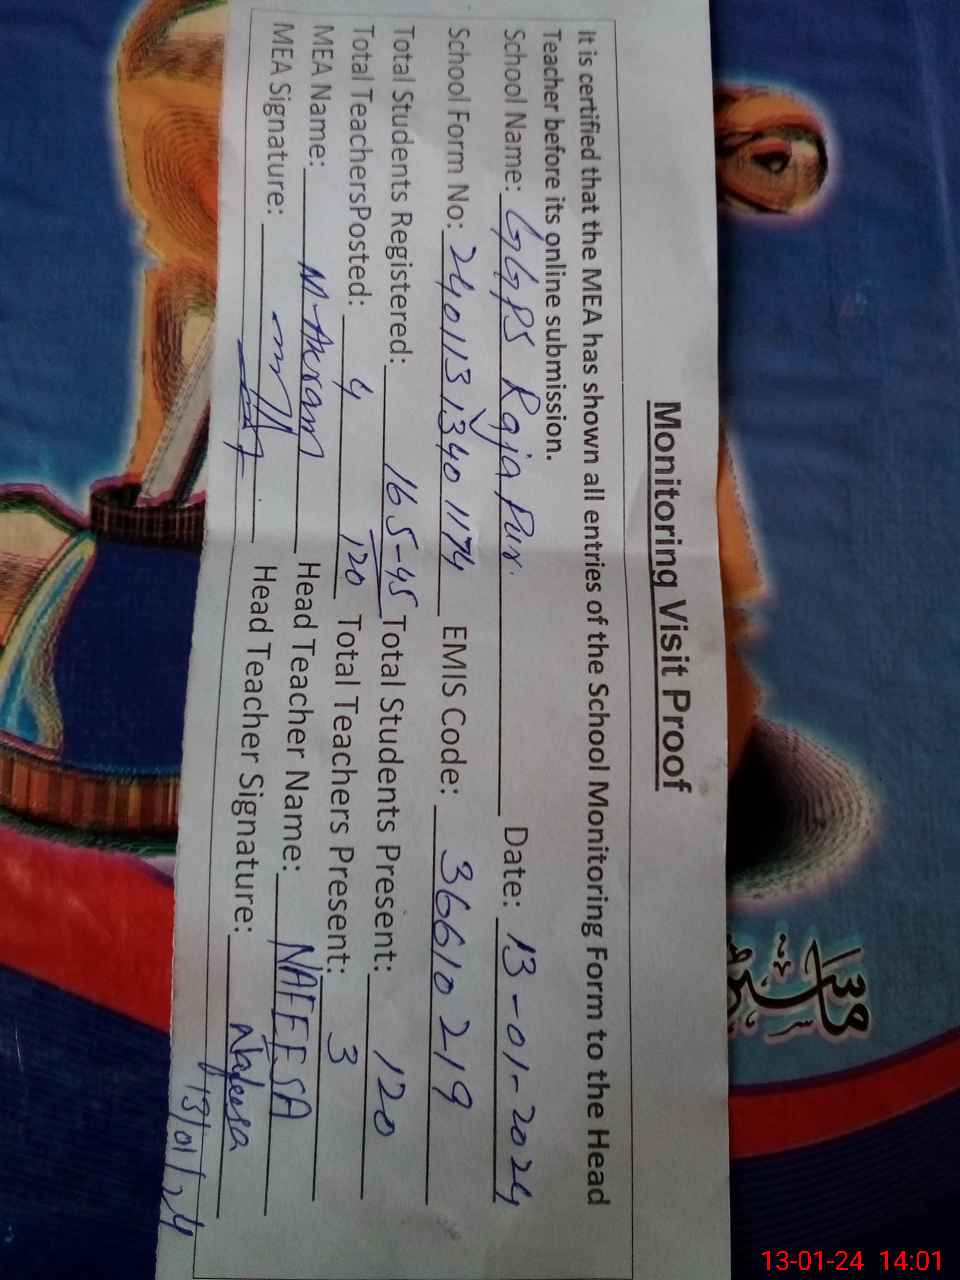 Monitoring Visit Proof
It is certified that the MEA has shown all entries of the School Monitoring Form to the Head
Teacher before its online submission.
School Name: GGPS Raja Pur. Date: 13-01-2024
School Form No: 2401131340 1174 EMIS Code: 36610219
Total Students Registered: 165-45 Total Students Present: 120
120
Total TeachersPosted: 4 Total Teachers Present: 3
MEA Name: M-Akram Head Teacher Name: NAFEESA
MEA Signature: Head Teacher Signature: Nafeesa
13/01/24
13-01-24 14:01